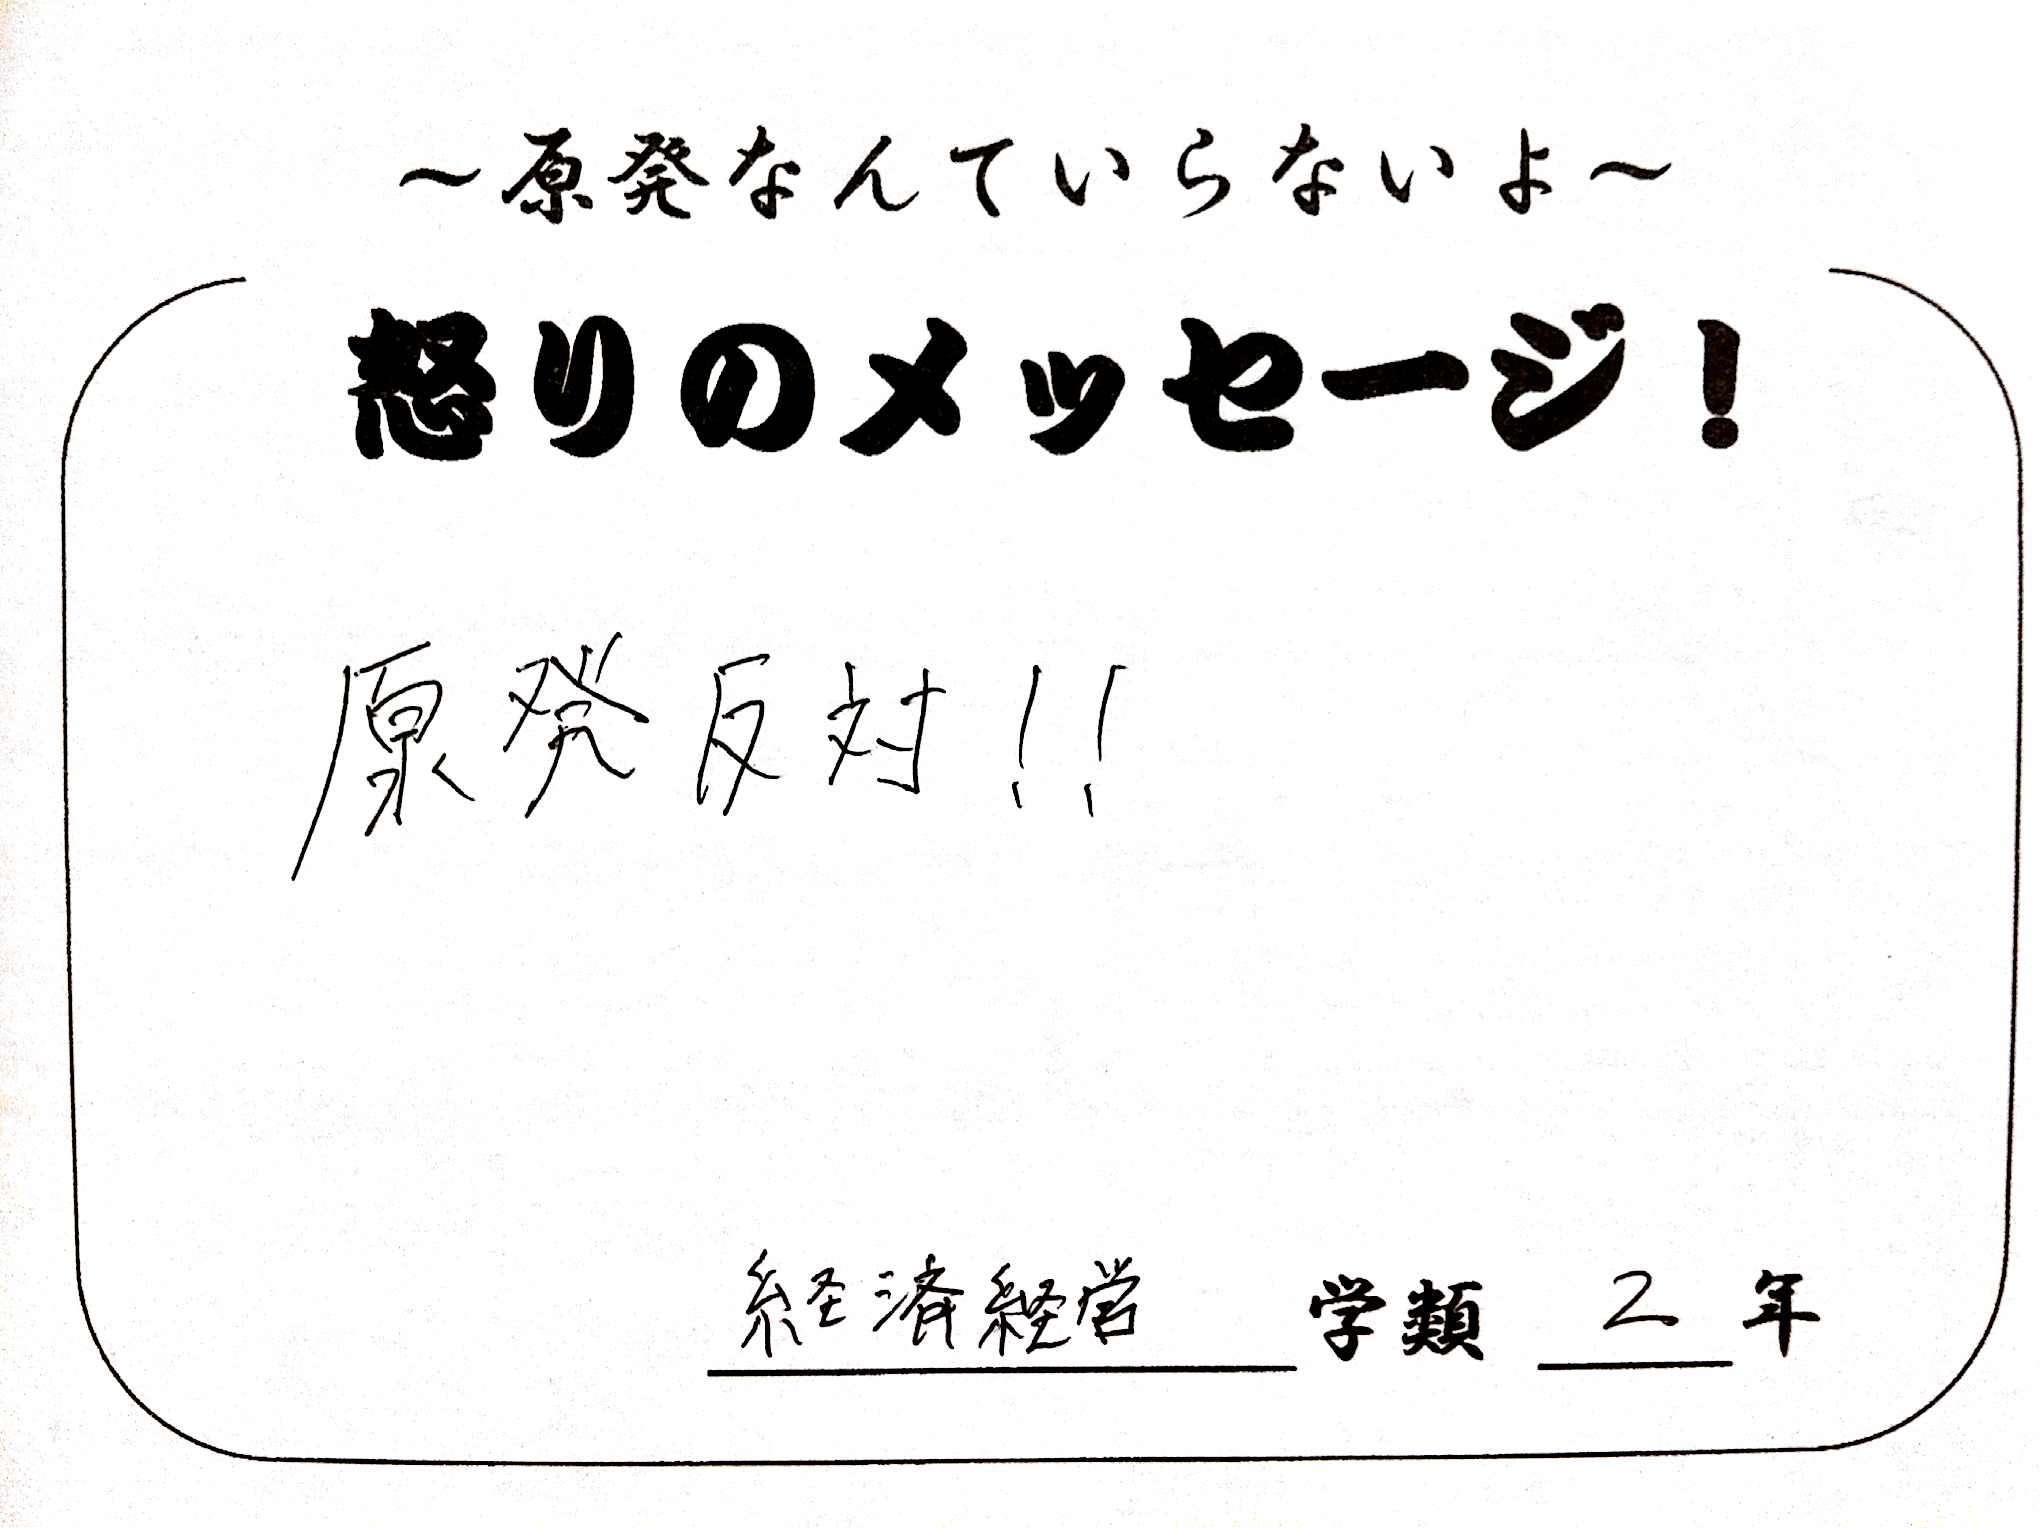 ～原発なんていらないよ～
怒りのメッセージ！
原発反対！！
経済経営 学類 2 年